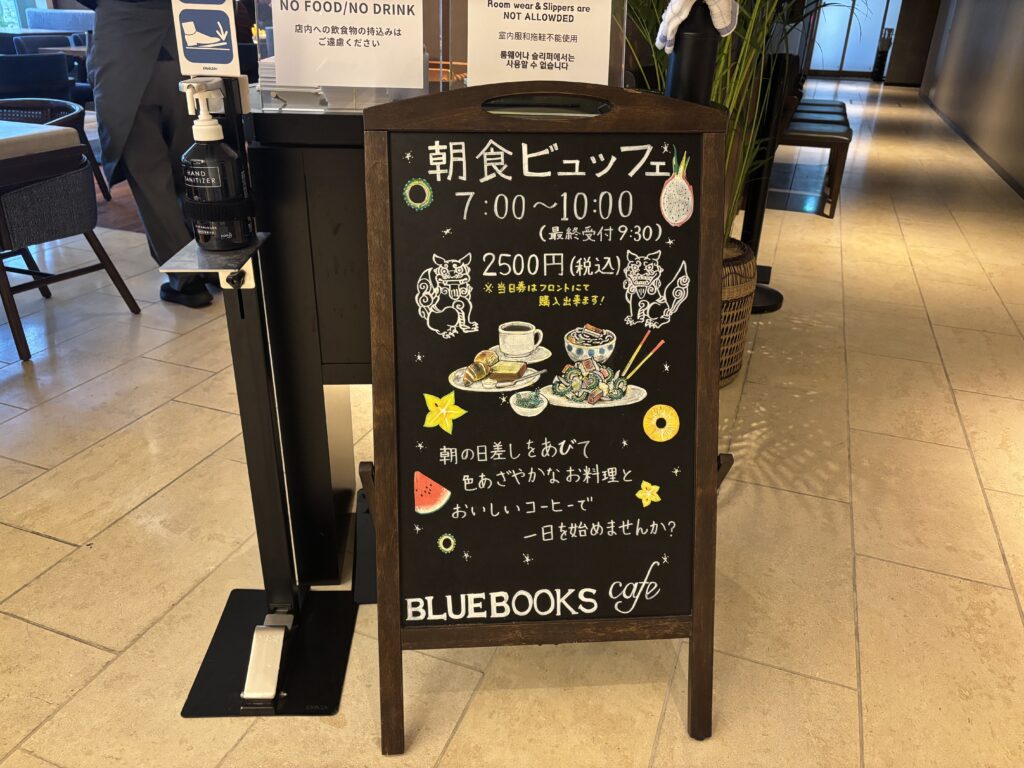 NO FOOD/NO DRINK
店内への飲食物の持込みは
ご遠慮ください
Room wear & Slippers are
NOT ALLOWDED
室内服和拖鞋不能使用
룸웨어나 슬리퍼에서는
사용할 수 없습니다
HAND
SANITIZER
朝食ビュッフェ
7:00〜10:00
(最終受付 9:30)
2500円(税込)
※当日券はフロントにて
購入出来ます!
朝の日差しをあびて
色あざやかなお料理と
おいしいコーヒーで
一日を始めませんか?
BLUEBOOKS cafe